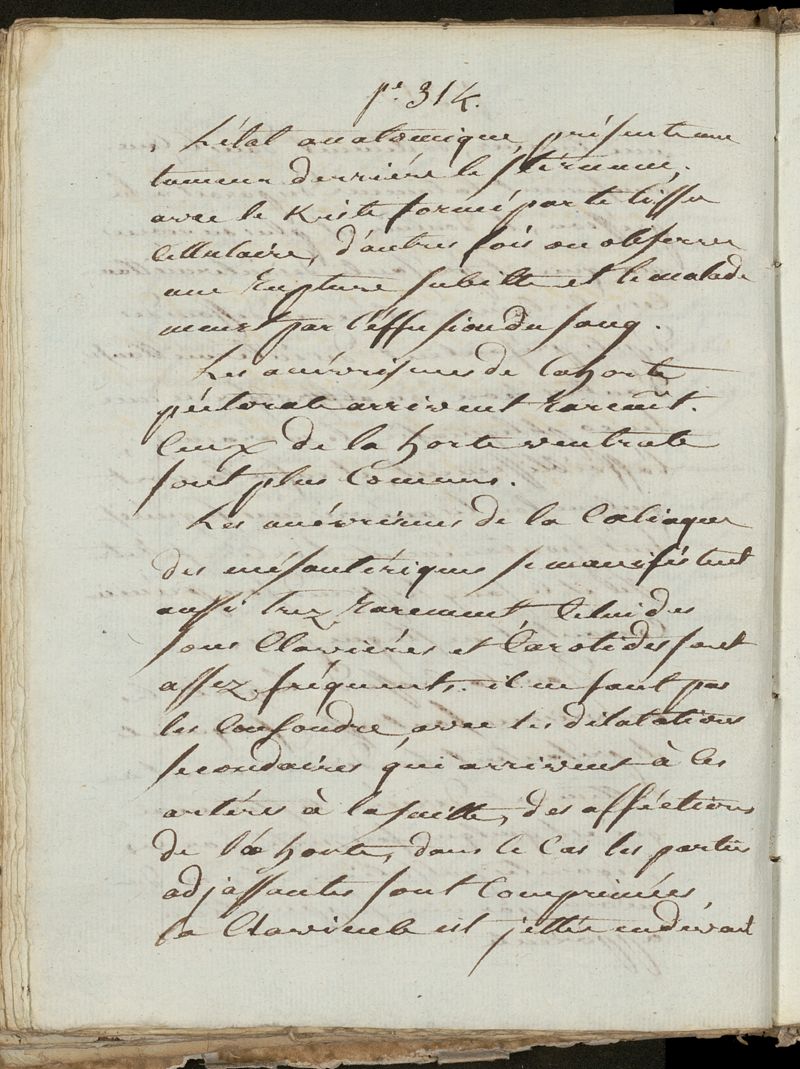 pe. 314.
L'état anatomique, présente une
tumeur derriére le stérnum,
avec le Kiste formé par le tissu
Céllulaire, d'autres fois on observe
une rupture subitte et le malade
meurt par l'éffusion du sang.
Les anévrismes de l'ahorte
péctorale arrivent rarem̃t.
Ceux de la horte ventrale
sont plus Communs.
Les anévrismes de la Cæliaque
des mésantériques se manifestent
aussi trez rarement Celui des
sous Clavieres et Carotides sont
assez fréquents. il ne faut pas
les Confondre, avec les dilatations
secondaires qui arrivent à Ces
artéres à la suitte, des afféctions
de l'a horte, dans ce Cas les parties
adjassantes sont Comprimées
la Clavicule est jettée en dévant